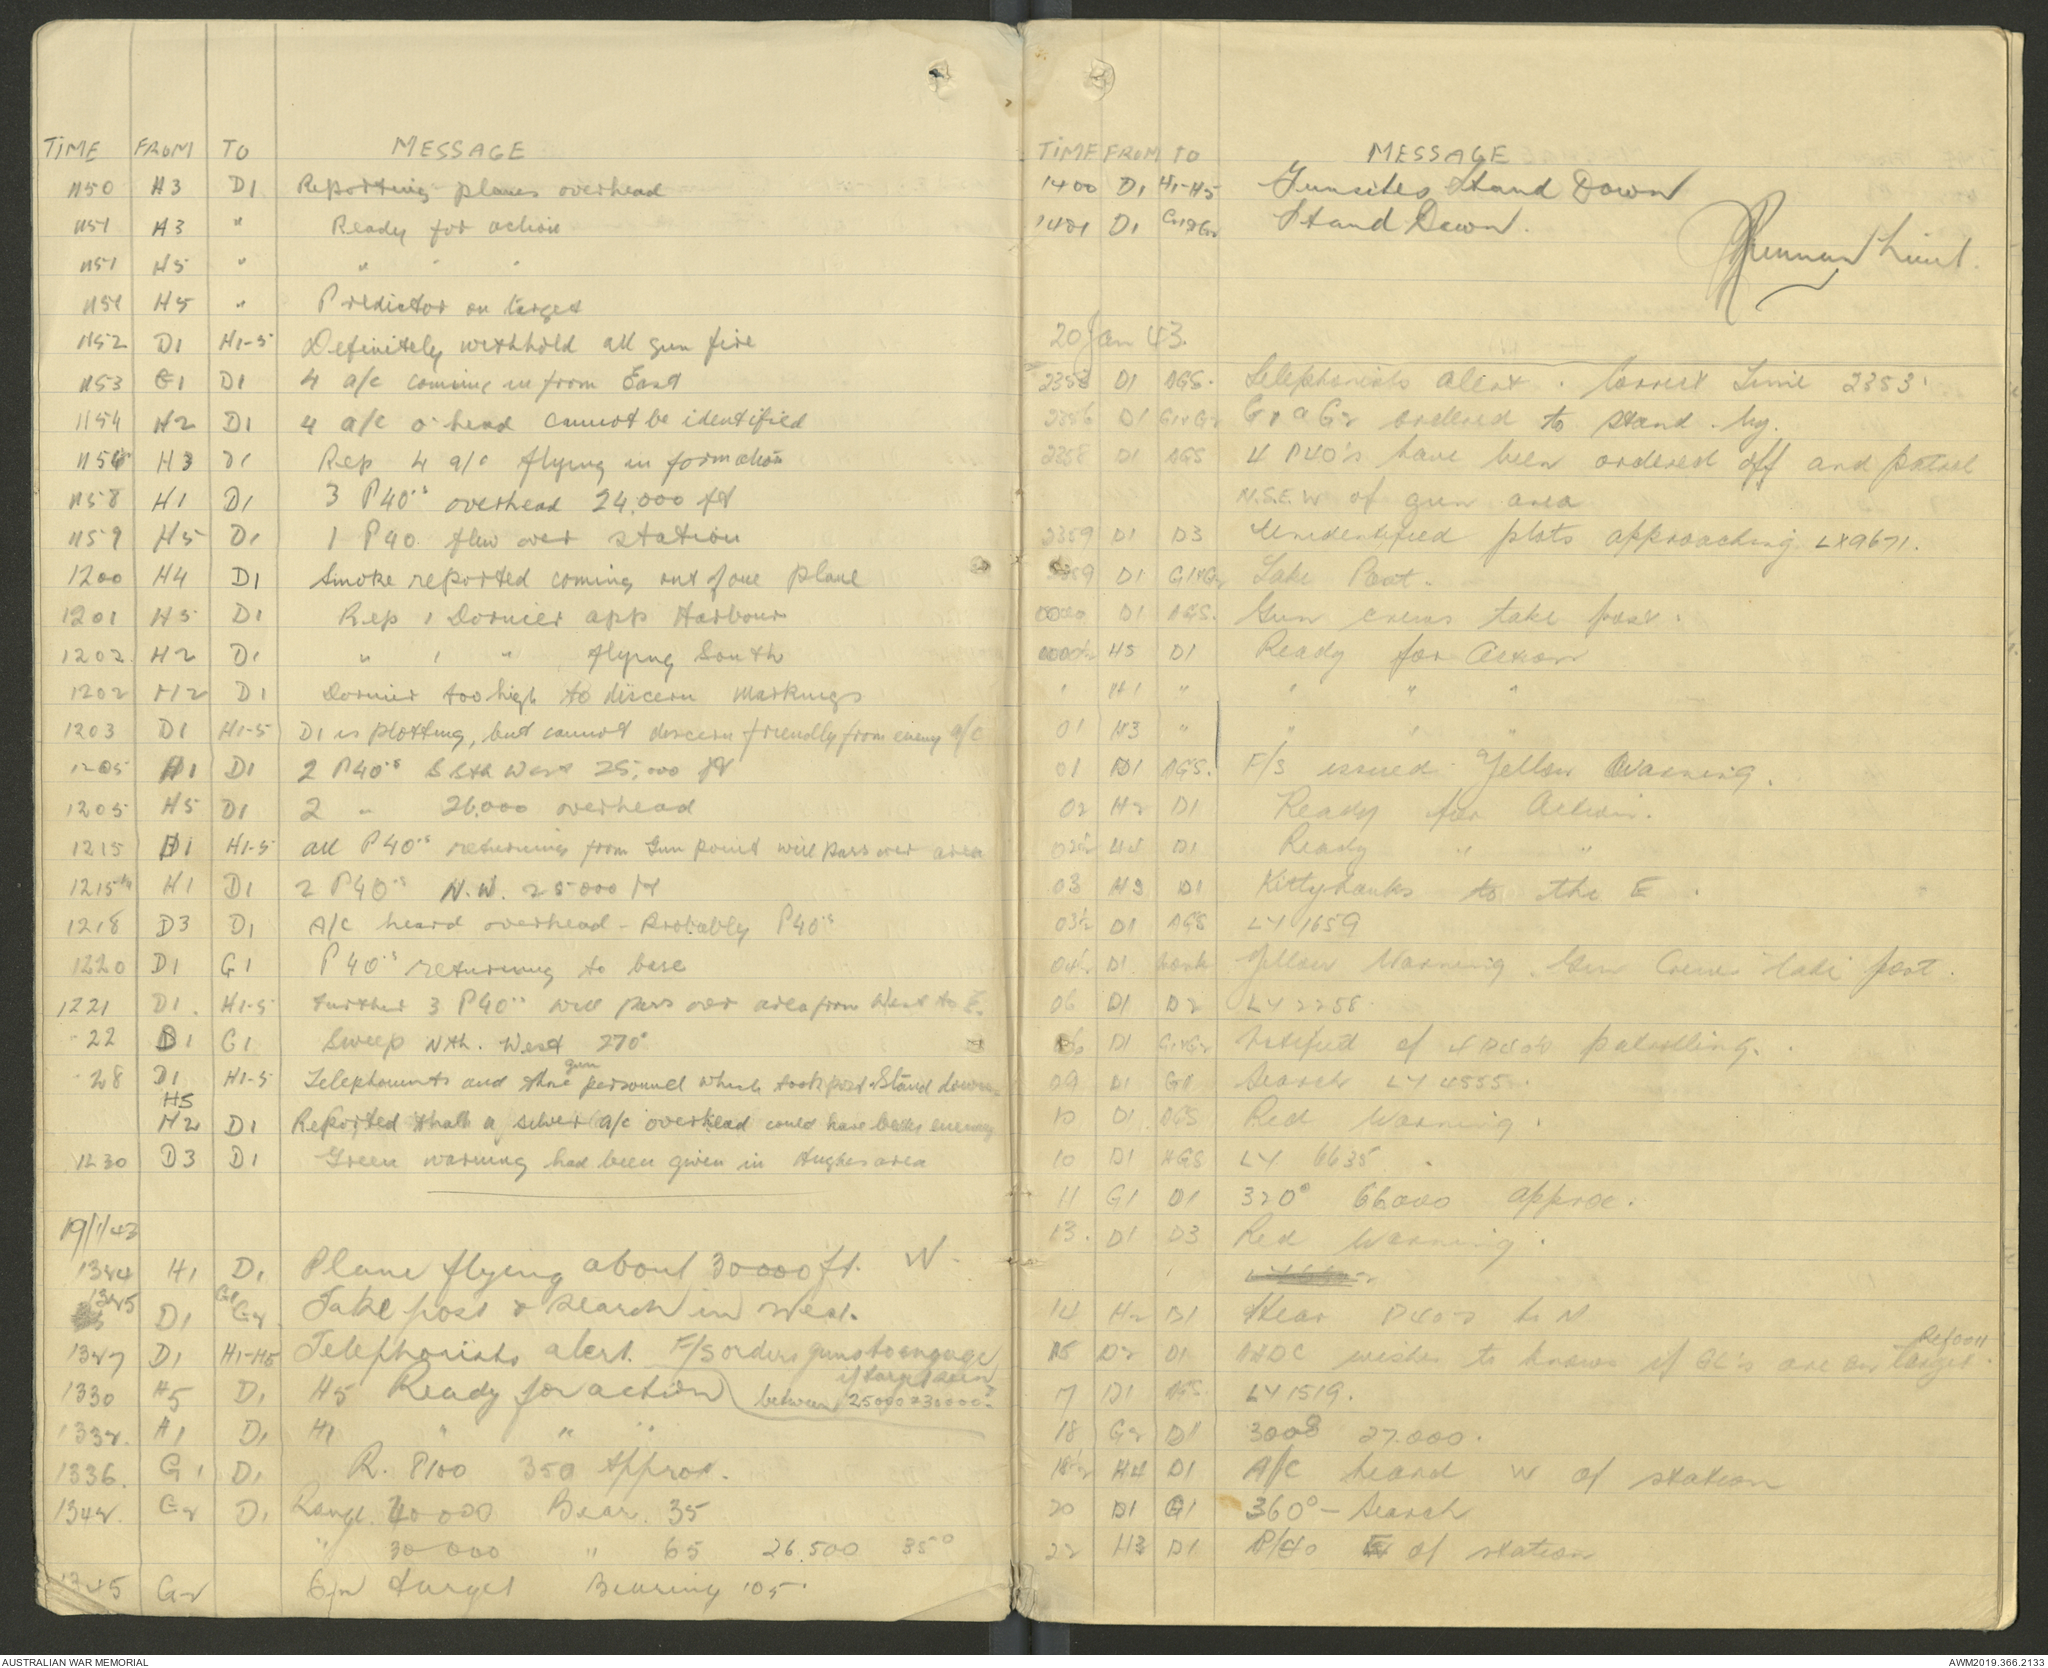 TIME FROM TO MESSAGE
1150 H3 D1 Reporting planes overhead
1151 H3 " Ready for action
1151 H5 " " " "
1151 H5 " Predictor on target
1152 D1 H1-5 Definitely withhold all gun fire
1153 G1 D1 4 a/c coming in from East
1154 H2 D1 4 a/c o'head cannot be identified
1156 H3 D1 Rep 4 a/c flying in formation
1158 H1 D1 3 P40's overhead 24,000 ft
1159 H5 D1 1 P40 flew over station
1200 H4 D1 Smoke reported coming out of one plane
1201 H5 D1 Rep 1 Dornier app Harbour
1202 H2 D1 " 1 " flying South
1202 H2 D1 Dornier too high to discern markings
1203 D1 H1-5 D1 is plotting, but cannot discern friendly from enemy a/c
1205 H1 D1 2 P40's Sth West 25,000 ft
1205 H5 D1 2 " 26,000 overhead
1215 D1 H1-5 all P40's returning from Gun point will pass over area
1215½ H1 D1 2 P40's N.W. 25000 ft
1218 D3 D1 A/C heard overhead - Probably P40's
1220 D1 G1 P40's returning to base
1221 D1. H1-5 Further 3 P40's will pass over area from West to E.
-22 D1 G1 Sweep Nth. West 270°
-28 D1 H1-5 Telephonists and those gun personnel which took post Stand down
H5
H2 D1 Reported that a silver a/c overhead could have been enemy
1230 D3 D1 Green warning had been given in Hughes area
19/1/43
1324 H1 D1 Plane flying about 30000 ft. W-
1325 D1 G1 G2 Take post & search in West.
1327 D1 H1-H5 Telephonists alert. F/S orders guns to engage
if target seen
1330 H5 D1 H5 Ready for action between 25000 & 30000
1332. H1 D1 H1 " " "
1336. G1 D1 R. 8100 350 Approx.
1342. G2 D1 Range. 40000 Bear. 35
" 30000 " 65 26,500 35°
1345 G2 On target Bearing 105.
TIME FROM TO MESSAGE
1400 D1 H1-H5 Gunsites Stand Down
1401 D1 G1&G2 Stand Down.
Lieut.
20 Jan 43.
2353 D1 AGS. Telephonists alert. Correct Time 2353
2356 D1 G1&G2 G1 & G2 ordered to stand-by.
2358 D1 AGS 4 P40's have been ordered off and patrol
N.S.E.W of gun area
2359 D1 D3 Unidentified plots approaching LX9671.
2359 D1 G1&G2 Take Post.
0000 D1 AGS. Gun crews take post.
0000½ H5 D1 Ready for Action
" H1 " " " "
01 H3 " " " "
01 D1 AGS. F/S issued Yellow Warning.
02 H2 D1 Ready for Action.
02½ H4 D1 Ready " "
03 H3 D1 Kittyhawks to the E.
03½ D1 AGS LY 1659
04½ D1 Yellow Warning. Gun Crews take post.
06 D1 D2 LY 2258.
06 D1 G1&G2 Notified of 4 P40's patrolling.
09 D1 G1 Search LY 4555.
10 D1 AGS Red Warning.
10 D1 AGS LY 6635.
11 G1 D1 320° 66000 approx.
13. D1 D3 Red Warning.
14 H2 D1 Hear P40's to N
15 D2 D1 wishes to know if GL's are on target. Report
17 D1 AGS. LY 1519.
18 G2 D1 300° 27.000.
18½ H4 D1 A/C heard W of station
20 D1 G1 360° - Search
22 H3 D1 P/40 E of station
AUSTRALIAN WAR MEMORIAL
AWM2019.366.2133